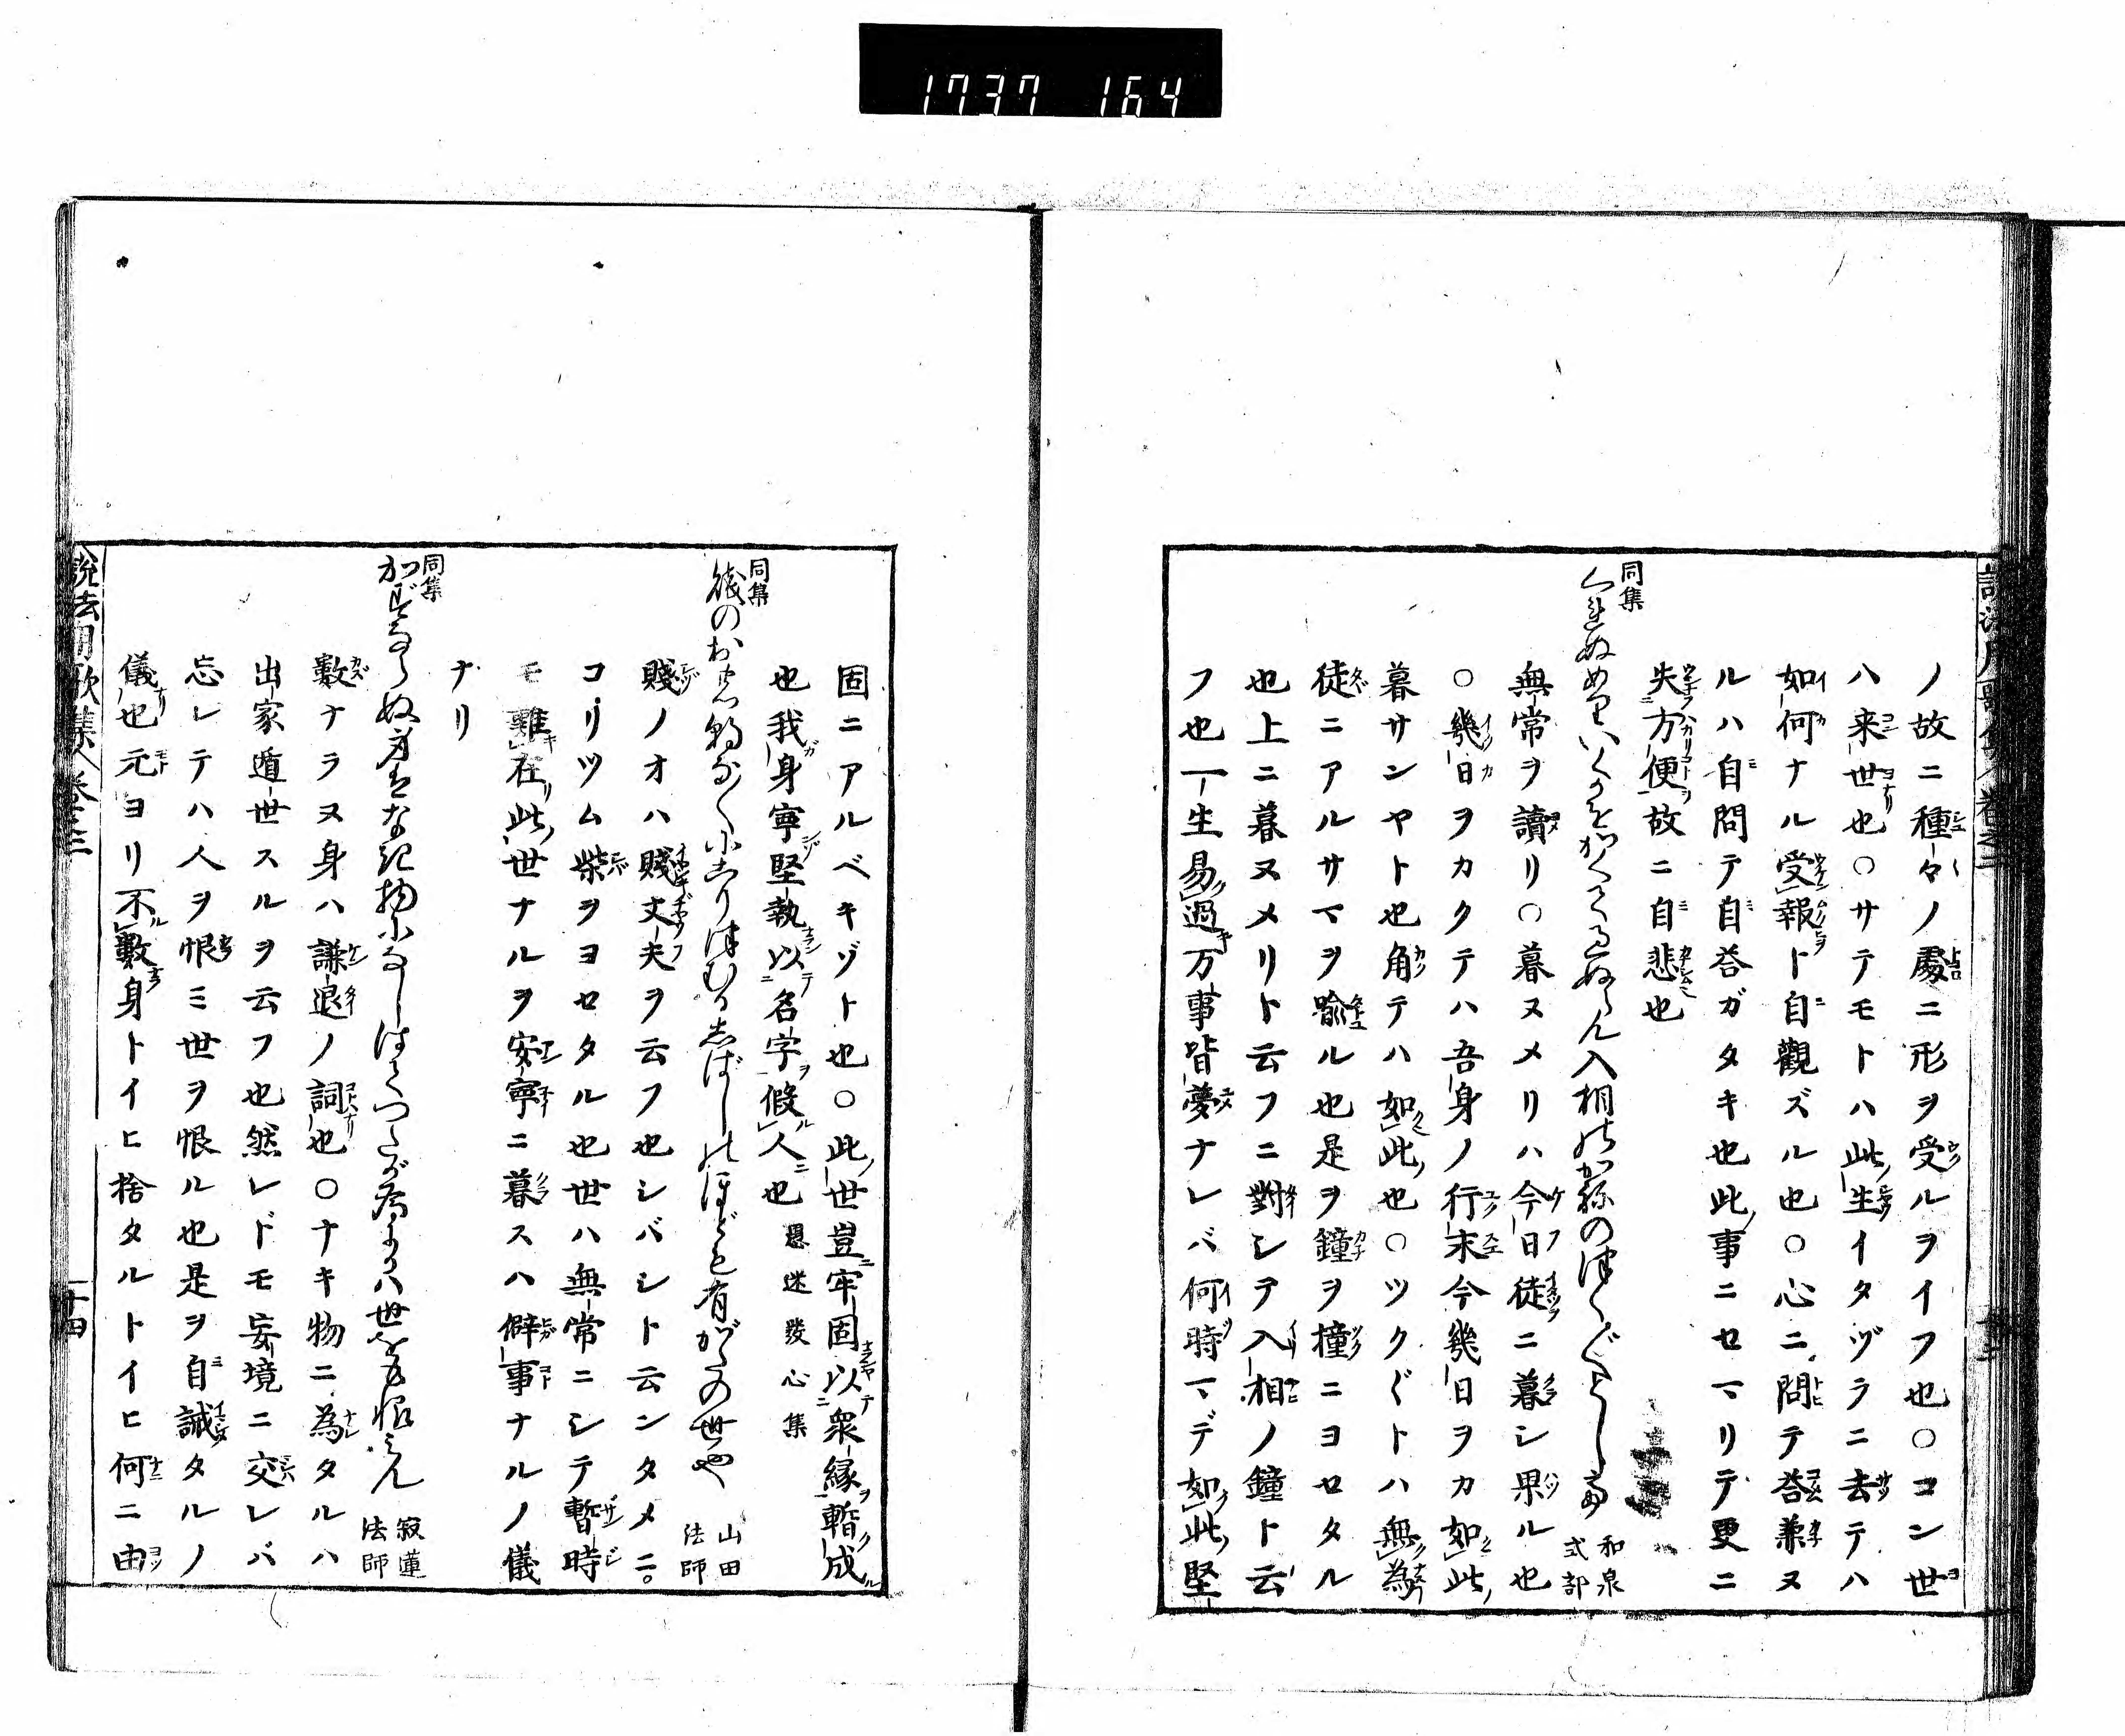 1737 164
ノ故ニ種々ノ處ニ形ヲ受ルヲイフ也○コン世
ハ来世也○サテモトハ此生イタヅラニ去テハ
如何ナル受報ト自觀ズル也○心ニ問テ答兼ヌ
ルハ自問テ自答ガタキ也此事ニセマリテ更ニ
失方便故ニ自悲也
同集
くれぬめりいくかをかくてくれぬらん入相のかねのつくづくとして
和泉式部
無常ヲ讀リ○暮ヌメリハ今日徒ニ暮シ果ル也
○幾日ヲカクテハ吾身ノ行末今幾日ヲカ如此
暮サンヤト也角テハ如此也○ツクヅクトハ無為
徒ニアルサマヲ喩ル也是ヲ鐘ヲ撞ニヨセタル
也上ニ暮ヌメリト云フニ對シテ入相ノ鐘ト云
フ也一生易過万事皆夢ナレバ何時マデ如此堅
固ニアルベキゾト也○此世豈牢固以衆縁暫成
也我身寧堅執以名字假人也 愚迷發心集
同集
しばしのほども有がたの世や
山田法師
賤ノオハ賤丈夫ヲ云フ也シバシト云ンタメニ
コリツム柴ヲヨセタル也世ハ無常ニシテ暫時
モ難在此世ナルヲ安寧ニ暮スハ僻事ナルノ儀
ナリ
同集
かずならぬ身はなき物になしはてつたが為にかは世をも恨みん
寂蓮法師
數ナラヌ身ハ謙退ノ詞也○ナキ物ニ為タルハ
出家遁世スルヲ云フ也然レドモ妄境ニ交レバ
忘レテハ人ヲ恨ミ世ヲ恨ル也是ヲ自誡タルノ
儀也元ヨリ不數身トイヒ捨タルトイヒ何ニ由
説法用歌集 巻之二
十四